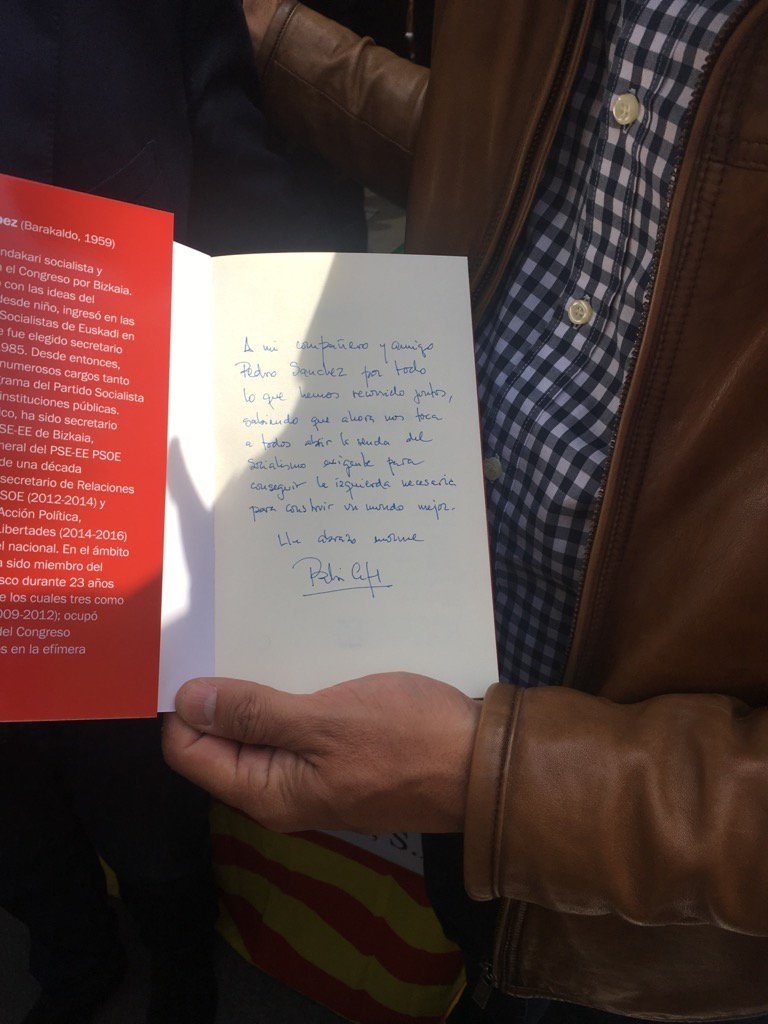 ez (Barakaldo, 1959)
ndakari socialista y
n el Congreso por Bizkaia.
con las ideas del
desde niño, ingresó en las
Socialistas de Euskadi en
e fue elegido secretario
1985. Desde entonces,
numerosos cargos tanto
grama del Partido Socialista
instituciones públicas.
ico, ha sido secretario
SE-EE de Bizkaia,
neral del PSE-EE PSOE
de una década
secretario de Relaciones
SOE (2012-2014) y
Acción Política,
Libertades (2014-2016)
el nacional. En el ámbito
a sido miembro del
sco durante 23 años
e los cuales tres como
009-2012); ocupó
del Congreso
s en la efímera
A mi compañero y amigo
Pedro Sánchez por todo
lo que hemos recorrido juntos,
sabiendo que ahora nos toca
a todos abrir la senda del
socialismo exigente para
conseguir la izquierda necesaria
para construir un mundo mejor.
Un abrazo enorme